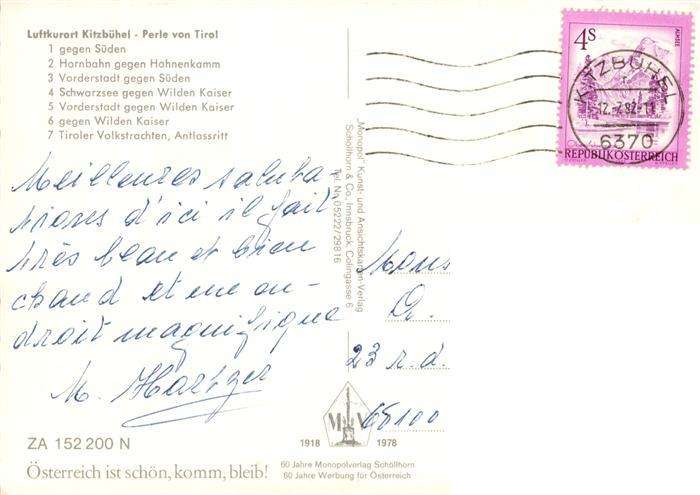 Luftkurort Kitzbühel - Perle von Tirol
1 gegen Süden
2 Hornbahn gegen Hahnenkamm
3 Vorderstadt gegen Süden
4 Schwarzsee gegen Wilden Kaiser
5 Vorderstadt gegen Wilden Kaiser
6 gegen Wilden Kaiser
7 Tiroler Volkstrachten, Antlassritt
Meilleures saluta-
tions d'ici il fait
très beau et bien
chaud et un en-
droit magnifique
M. Hartzer
ZA 152 200 N
Österreich ist schön, komm, bleib!
„Monopol" Kunst- und Ansichtskarten-Verlag
Schöllhorn & Co., Innsbruck, Colingasse 6
Tel. Nr. 05222/29816
4S
ALMSEE
REPUBLIK ÖSTERREICH
KITZBÜHEL
6370
Mons
23 r. d.
68100
M V
1918 1978
60 Jahre Monopolverlag Schöllhorn
60 Jahre Werbung für Österreich